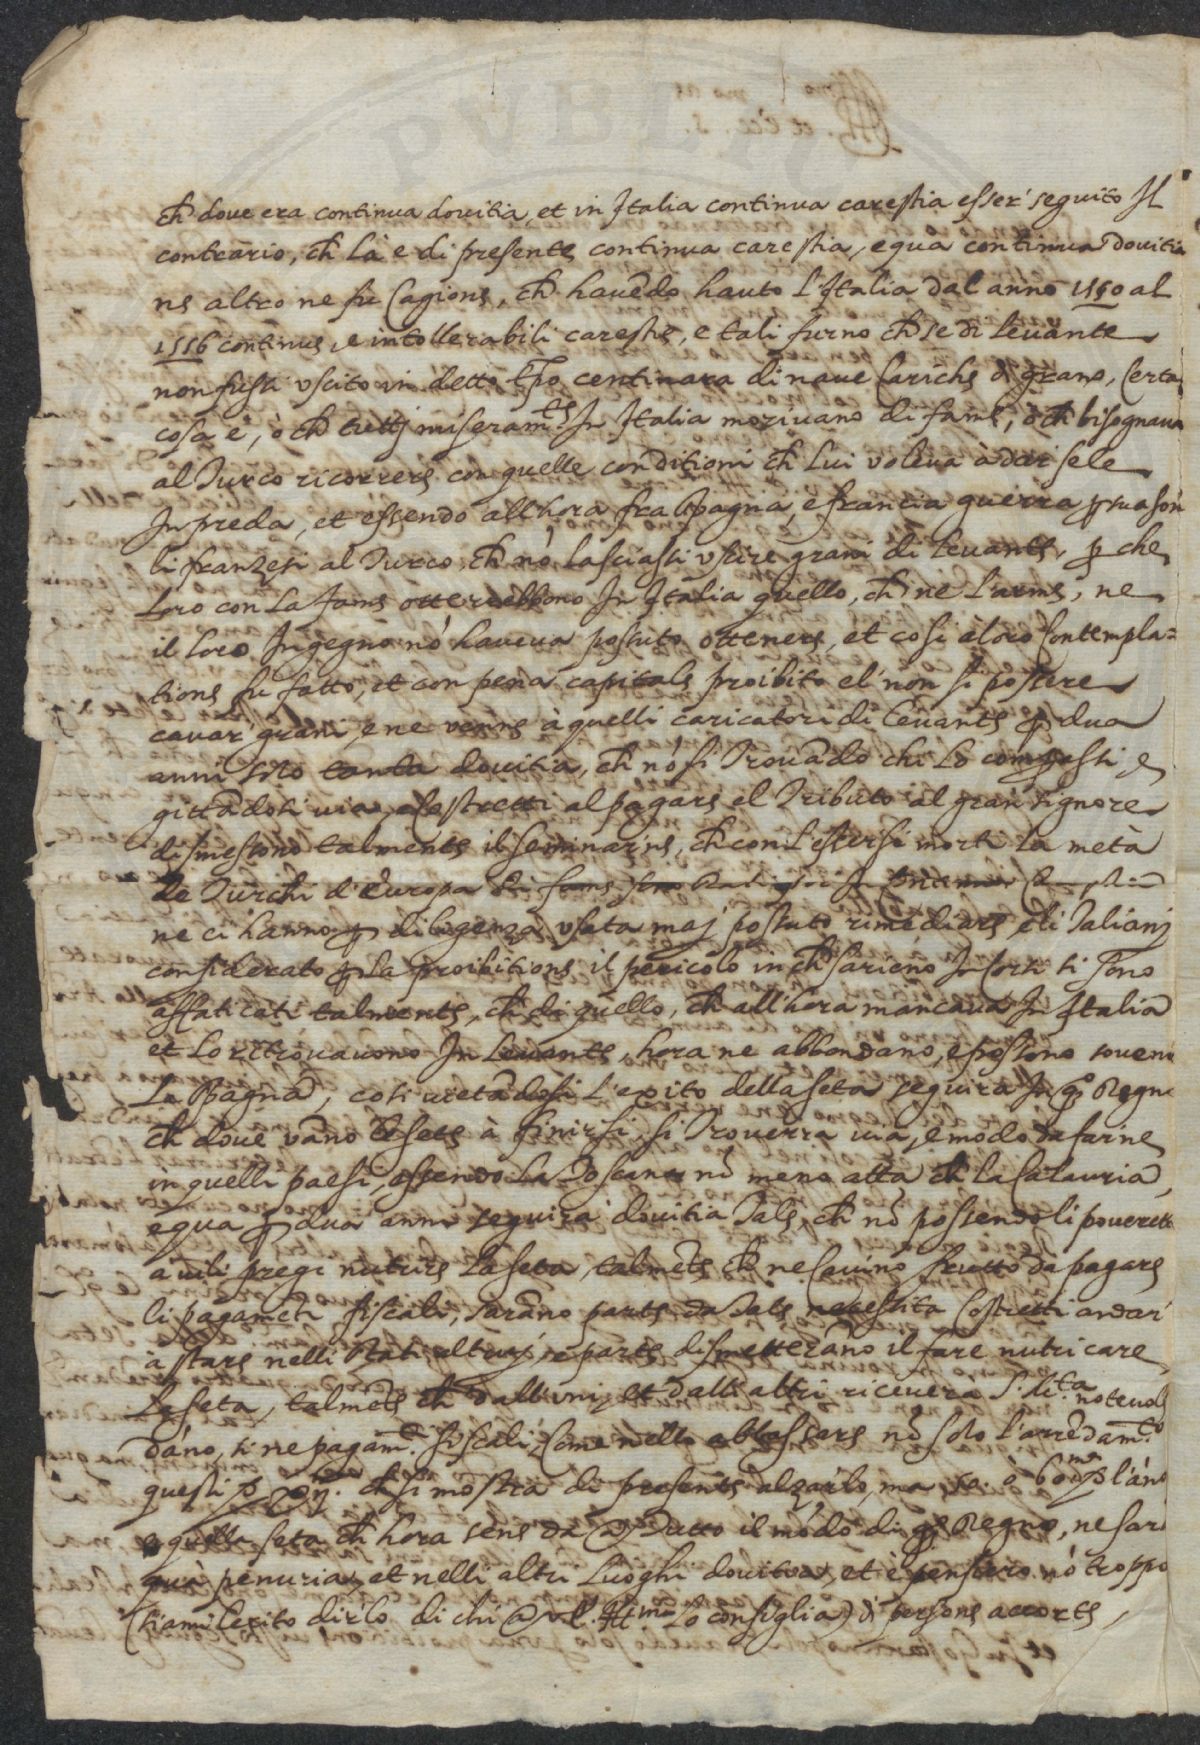 ch dove era continua dovitia, et in Italia continua carestia esser seguito Il
contrario, ch là e di presente continua carestia, e qua continua dovitia
ne altro ne fu Cagione, ch havēdo hauto l'Italia dal anno 1550 al
1556 continue, e intollerabili carestie, e tali furno ch se di Levante
non fussi uscito in detto tpo centinara di nave Cariche di grano, Certa
cosa è, ò ch tuttj miseramte In Italia morivano di fame, ò ch bisognava
al Turco ricorrere con quelle conditioni ch Lui voleva à darsele
In preda, et essendo all'hora fra Spagna, e francia guerra
li franzesi al Turco ch nō lasciassi uscire grani di Levante, p che
Loro con La fame otterrebbono In Italia quello, ch ne l'arme, ne
il loro Ingegno nō haveva possuto ottenere, et così a loro Contempla=
tione fu fatto, et con pena capitale proibito el non si possere
cavar grani, e ne venne à quelli caricatori di Levante p dua
anni tanta dovitia, ch nō si Trovādo chi Lo compassi e
gittādosi via, e Costretti al pagare el Tributo al gran signore
dismessono talmente il seminarne, ch con l'essersi morti La metà
de Turchi d'Europa di fame
ne ci hanno p diligenza usata maj possuto rimediare, e li Talianj
considerato p La proibitione il pericolo in ch sarieno Incorsi si sono
affaticati talmente, ch di quello, ch all'hora mancava In Italia
et Lo ritrovavono In Levante, hora ne abbondano, e possono sovenir
La Spagna, così vietādosi L'exito della seta seguira In qo Regno
ch dove vāno Le sete à finirsi, si Troverra via, e modo da farne
in quelli paesi, essendo La Toscana nō meno atta ch la Calauria,
e qua p dua anni seguirà dovitia Tale, ch nō possendo li poveretti
a vili pregi nutrire La seta, talmēte ch ne Cavino frutto da pagare
li pagamēti fiscali, sarāno parte da Tale necessità Costretti andar'
à stare nelli Stati altruj, e parte dismetterāno il fare nutricare
La seta, talmēte ch dalli unj, et dalli altri ricevera S. Mta notevole
dāno, si ne pagamti fiscali, Come nello abbassare nō solo l'arrēdamto
questi ch si mostra di presente alzarlo, ma l'āno
e quella seta ch hora sene da a Tutto il mōdo di qo Regno, ne sarà
quà penuria, et nelli altri Luoghi dovitia, et è pensiero nō troppo
(siami lecito dirlo di chi a V.S. Illma Lo consiglia) di persone accorte,